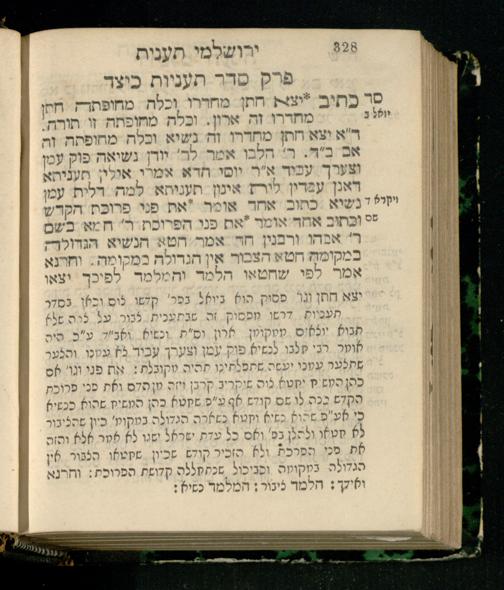 328
ירושלמי תענית
פרק סדר תעניות כיצד
סר כתיב *יצא חתן מחדרו וכלה מחופתה חתן
יואל ב
מחדרו זה ארון. וכלה מחופתה זו תורה.
ד"א יצא חתן מחדרו זה נשיא וכלה מחופתה זה
אב ב"ד. ר' חלבו אמר לר' יודן נשיאה פוק עמן
וצערך עבוד א"ר יוסי הדא אמרי אילין תעניתא
דאנן עבדין לית אינון תעניתא למה דלית עמן
נשיא כתוב אחד אומר *את פני פרוכת הקדש
ויקרא ד
וכתוב אחד אומר *את פני הפרוכת ר' חמא בשם
שם
ר' אבהו ורבנין חד אמר חטא הנשיא הגדולה
במקומה חטא הצבור אין הגדולה במקומה. וחרנא
אמר לפי שחטאו הלמד והמלמד לפיכך יצאו
יצא חתן וגו' פסוק הוא ביואל בפר' קדשו לום וכאן בסדר
תעניות דרשו מפסוק זה שבתענית לבור על לרה שלא
תבוא יולאים ממקומן ארון וס"ת ונשיא ואב"ד ע"כ היה
אומר רבי חלבו לנשיא פוק עמן וצערך עבוד לא עמנו והלער
שתלער עמנו יעשה שתפלתינו תהיה מקובלת: את פני וגו' אם
כהן המשיח יחטא מה שיקריב קרבן ויזה מהדם ואת פני פרוכת
הקדש ככה לו שם קודש אף ע"פ שחטא כהן המשיח שהוא כנשיא
כי אע"פ שהוא נשיא וחטא נשארה הגדולה במקומ' כיון שהליבור
לא חטאו ולהלן בפ' ואם כל עדת ישראל ישגו לא אמר אלא והזה
את פני הפרכת ולא הזכיר קודש שכיון שחטאו הלבור אין
הגדולה במקומה וכביכול שנתחללה קדושת הפרוכת: וחרנא
ואידך: הלמד ליבור: המלמד נשיא: